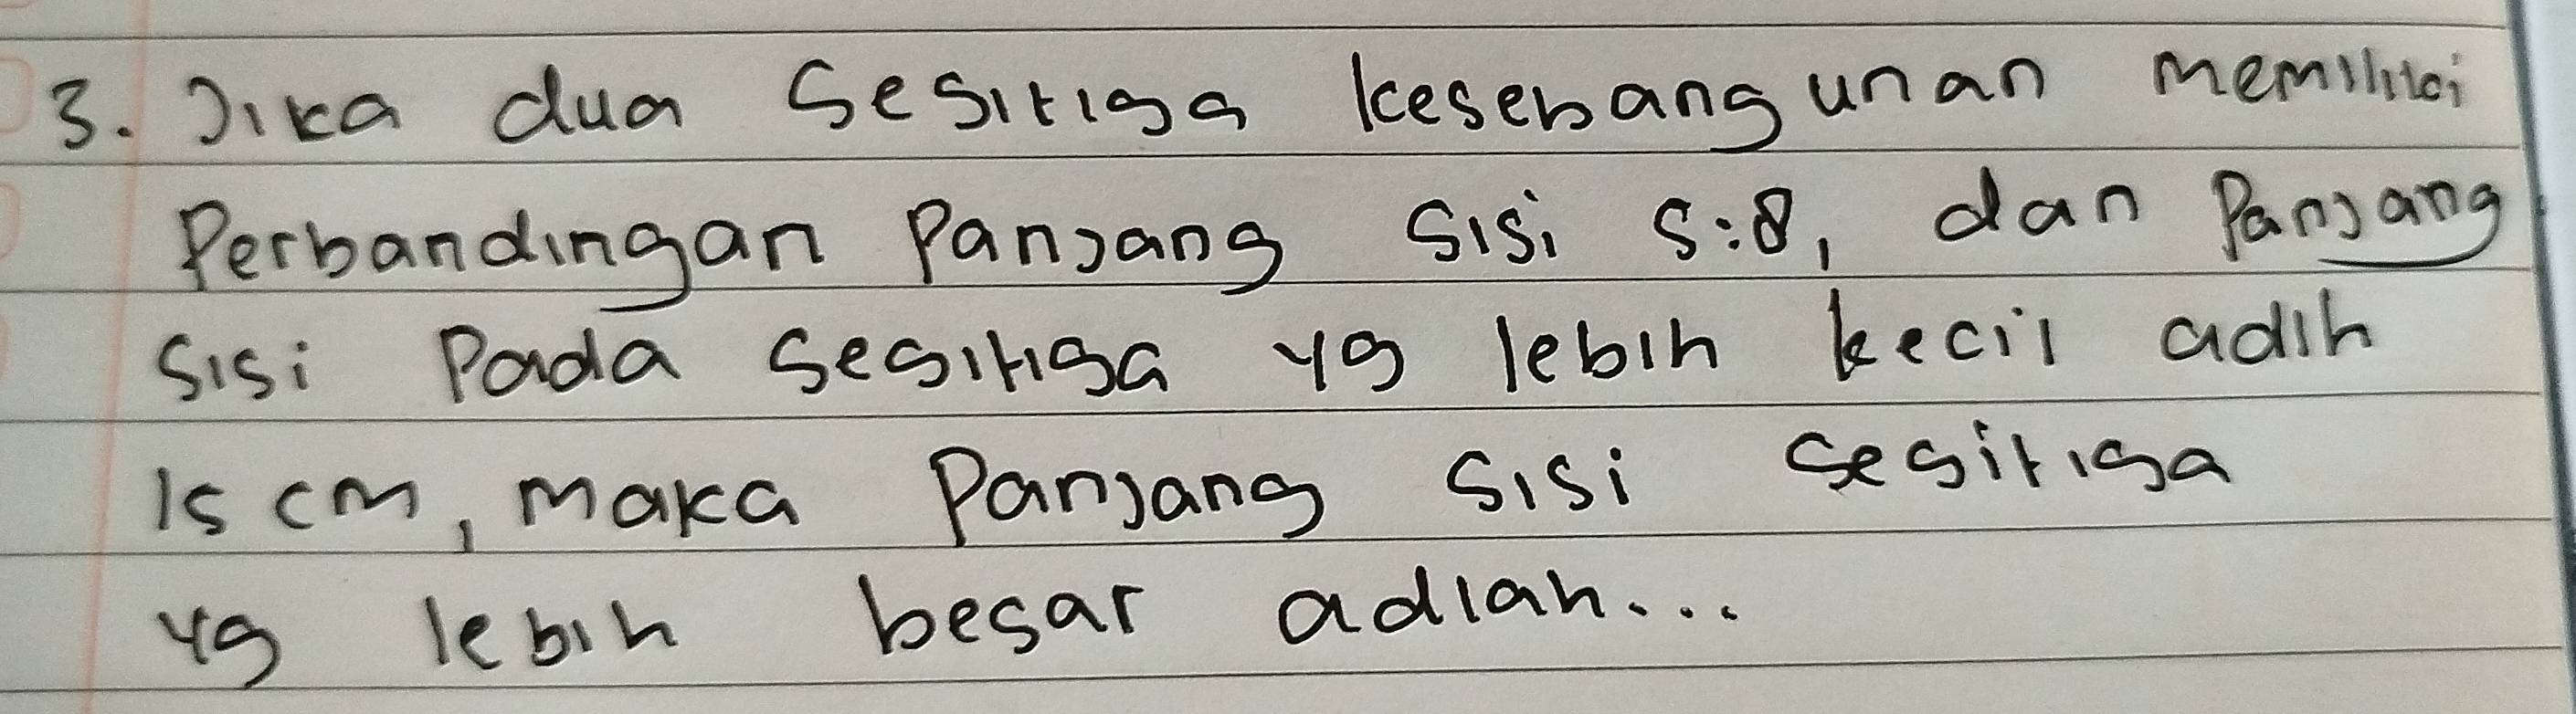 3. Jika dua Sesitiga kesebangunan memiliki
Perbandingan Panjang sisi 5:8, dan Panjang
sisi Pada segitiga yg lebih kecil adlh
15 cm, maka Panjang sisi segitiga
yg lebih besar adlah...